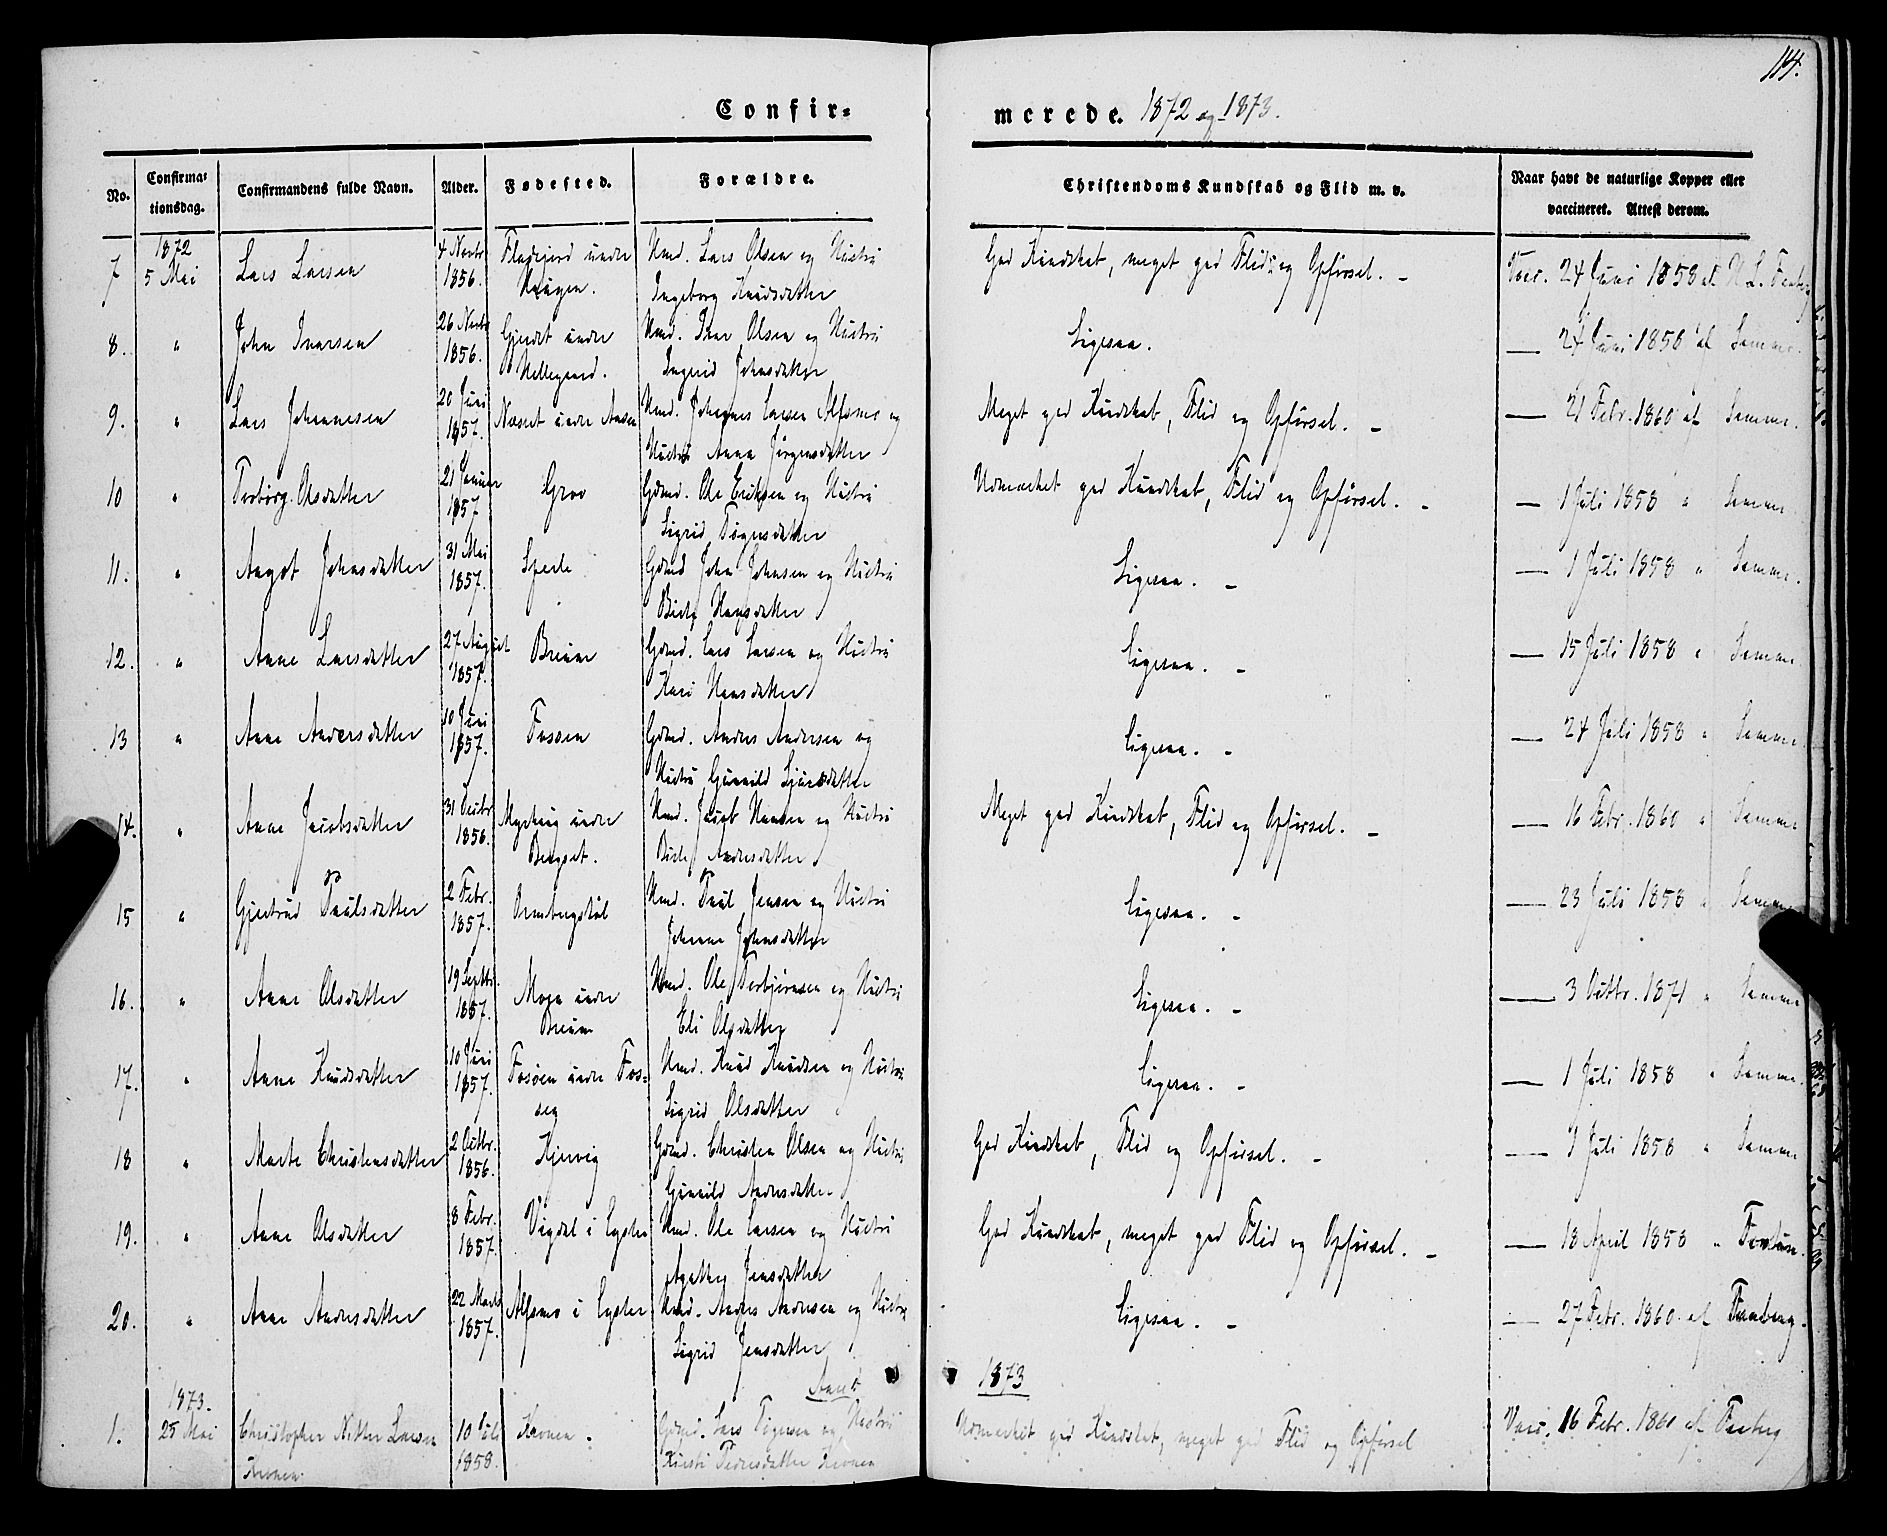 114.
Confir-
merede. 1872 og 1873.
No.
Confirma-
tionsdag.
Confirmandens fulde Navn.
Alder.
Fødested.
Forældre.
Christendoms Kundskab og Flid m. v.
Naar havt de naturlige Kopper eller
vaccineret. Attest derom.
1872
7 5 Mai Lars Larsen 4 Novbr 1856. under Haugen. Hmd. Lars Olsen og Hustru
Ingeborg Knudsdatter
God Kundskab, meget god Flid og Opførsel. –
Vacc. 24 Juni 1858 af
8. " John Iversen 26 Novbr 1856. Gjerdet under Hmd. Iver Olsen og Hustru
Ingrid Johnsdatter
Ligesaa.
— 24 Juni 1858 af Samme.
9. " Lars Johannesen 20 Juni 1857. Næset under Hmd. Johannes Larsen Alsmo og
Hustru Anna Jørgensdatter
Meget god Kundskab, Flid og Opførsel. –
— 21 Febr. 1860 af Samme.
10 " Torbørg Olsdatter 21 Januar 1857 Grov Gdmd. Ole Eriksen og Hustru
Sigrid Tøgersdatter
Udmærket god Kundskab, Flid og Opførsel. –
— 1 Juli 1858 " Samme.
11. " Angot Johnsdatter 31 Mai 1857. Sperle Gdmd John Johnsen og Hustru
Birte Hansdatter
Ligesaa. –
— 1 Juli 1858 " Samme.
12. " Anne Larsdatter 27 August 1857. Breum Gdmd. Lars Larsen og Hustru
Kari Hansdatter
Ligesaa. –
— 15 Juli 1858 " Samme
13 " Anne Andersdatter 10 Juni 1857. Fossen Gdmd. Anders Andersen og
Hustru Gunnild Sjursdatter
Ligesaa. –
— 24 Juli 1858 " Samme
14. " Anne Jacobsdatter 31 Decbr 1856. under Hmd. Jacob Hansen og Hustru
Bergset. Birte Andersdatter
Meget god Kundskab, Flid og Opførsel. –
— 16 Febr. 1860 " Samme
15 " Gjertrud Paulsdatter 2 Febr. 1857. Ormbergstøl Hmd. Paul Jensen og Hustru
Johanne Johnsdatter
Ligesaa. –
— 23 Juli 1858 " Samme
16. " Anne Olsdatter 19 Septbr. 1857. Moen under Hmd. Ole Torbjørnsen og Hustru
Breum Eli Olsdatter
Ligesaa. –
— 3 Octbr. 1871 " Samme
17. " Anne Knudsdatter 10 Juni 1857. Fosøen under Fos- Hmd. Knud Knudsen og Hustru
Sigrid Olsdatter
Ligesaa. –
— 1 Juli 1858 " Samme.
18 " Marte Christensdatter 2 Octbr. 1856. Kjervig Gdmd. Christen Olsen og Hustru
Gunnild Andersdatter
God Kundskab, Flid og Opførsel. –
— 1 Juli 1858 " Samme
19. " Anne Olsdatter 8 Febr. 1857. Vigdal i Lyster Hmd. Ole Larsen og Hustru
Agathe Jensdatter
God Kundskab, meget god Flid og Opførsel. –
— 18 April 1858 "
20. " Anne Andersdatter 22 Marts 1857. Alsmo i Lyster Hmd. Anders Andersen og Hustru
Sigrid Jensdatter
Ligesaa. –
— 27 Febr. 1860 af
1873
1873.
1. 25 Mai Christopher Nitter Larsen 10 Juli Kronen. Gdmd. Lars Tøgersen og Hustru
Kronen. 1858. Kirsti Pedersdatter Kronen
Udmærket god Kundskab, meget god Flid og Opførsel
Vacc. 16 Febr. 1860 af